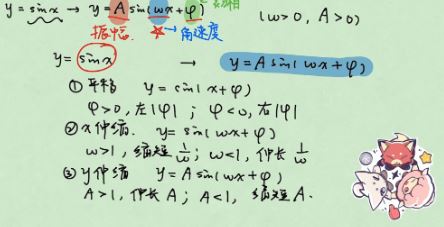 y = sinx → y = A sin(ωx + φ) 初相 (ω>0, A>0)
振幅 ☆→角速度
y = sinx → y = A sin(ωx + φ)
① 平移 y = sin(x + φ)
φ>0, 左|φ| ; φ<0, 右|φ|
② x伸缩. y = sin(ωx + φ)
ω>1, 缩短 1/ω ; ω<1, 伸长 1/ω
③ y伸缩 y = A sin(ωx + φ)
A>1, 伸长 A ; A<1, 缩短 A.